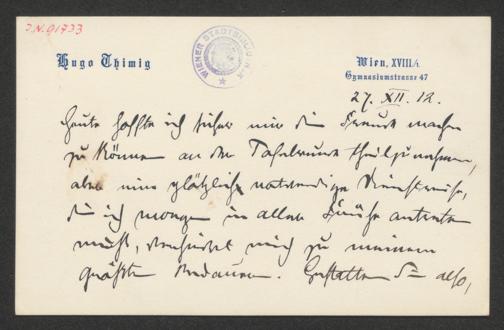 J.N. 91733
Hugo Thimig
WIENER STADTBIBLIOTHEK
Wien, XVIII/1.
Gymnasiumstrasse 47
27. XII. 12.
Heute hoffte ich sicher mir die Freude machen
zu können an der Tafelrunde theilzunehmen,
aber eine plötzlich notwendige Dienstreise,
die ich morgen in aller Frühe antreten
muß, verhindert mich zu meinem
größten Bedauern. Gestatten Sie also,